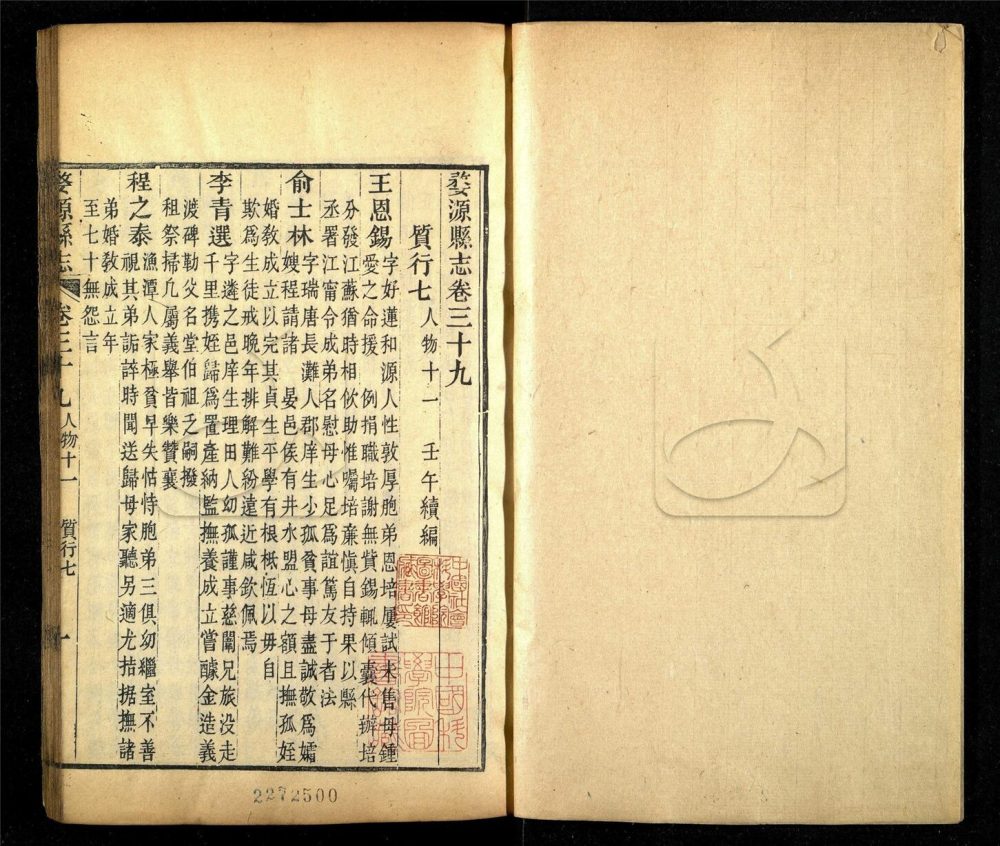 婺源縣志卷三十九
質行七 人物十一 壬午續編
王恩錫 字好蓮和源人性敦厚胞弟恩培屢試未售母鍾
愛之命援 例捐職培謝無貲錫輒傾囊代辦培
分發江蘇猶時相佽助惟囑培亷愼自持果以縣
丞署江甯令成弟名慰母心足爲誼篤友于者法
俞士林 字瑞唐長灘人郡庠生少孤貧事母盡誠敬爲孀
嫂程請諸 晏邑侯有井水盟心之額且撫孤姪
婚敎成立以完其貞生平學有根柢恆以毋自
欺爲生徒戒晚年排解難紛遠近咸欽佩焉
李青選 字遴之邑庠生理田人幼孤謹事慈闈兄旅没走
千里携姪歸爲置產納監撫養成立嘗醵金造義
渡碑勒父名堂伯祖乏嗣撥
租祭掃凡屬義舉皆樂贊襄
程之泰 漁潭人家極貧早失怙恃胞弟三俱幼繼室不善
視其弟詬誶時聞送歸母家聽另適尤拮据撫諸
弟婚敎成立年
至七十無怨言
婺源縣志 卷三十九 人物十一 質行七 一
中國科
學院圖
書館藏
2272500